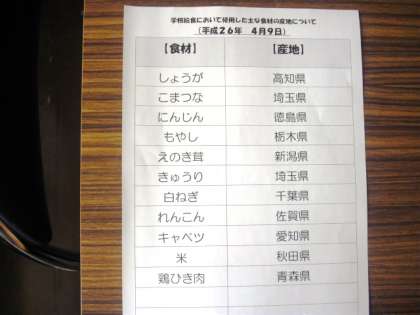 学校給食において使用した主な食材の産地について
(平成26年 4月9日)
【食材】 【産地】
しょうが 高知県
こまつな 埼玉県
にんじん 徳島県
もやし 栃木県
えのき茸 新潟県
きゅうり 埼玉県
白ねぎ 千葉県
れんこん 佐賀県
キャベツ 愛知県
米 秋田県
鶏ひき肉 青森県